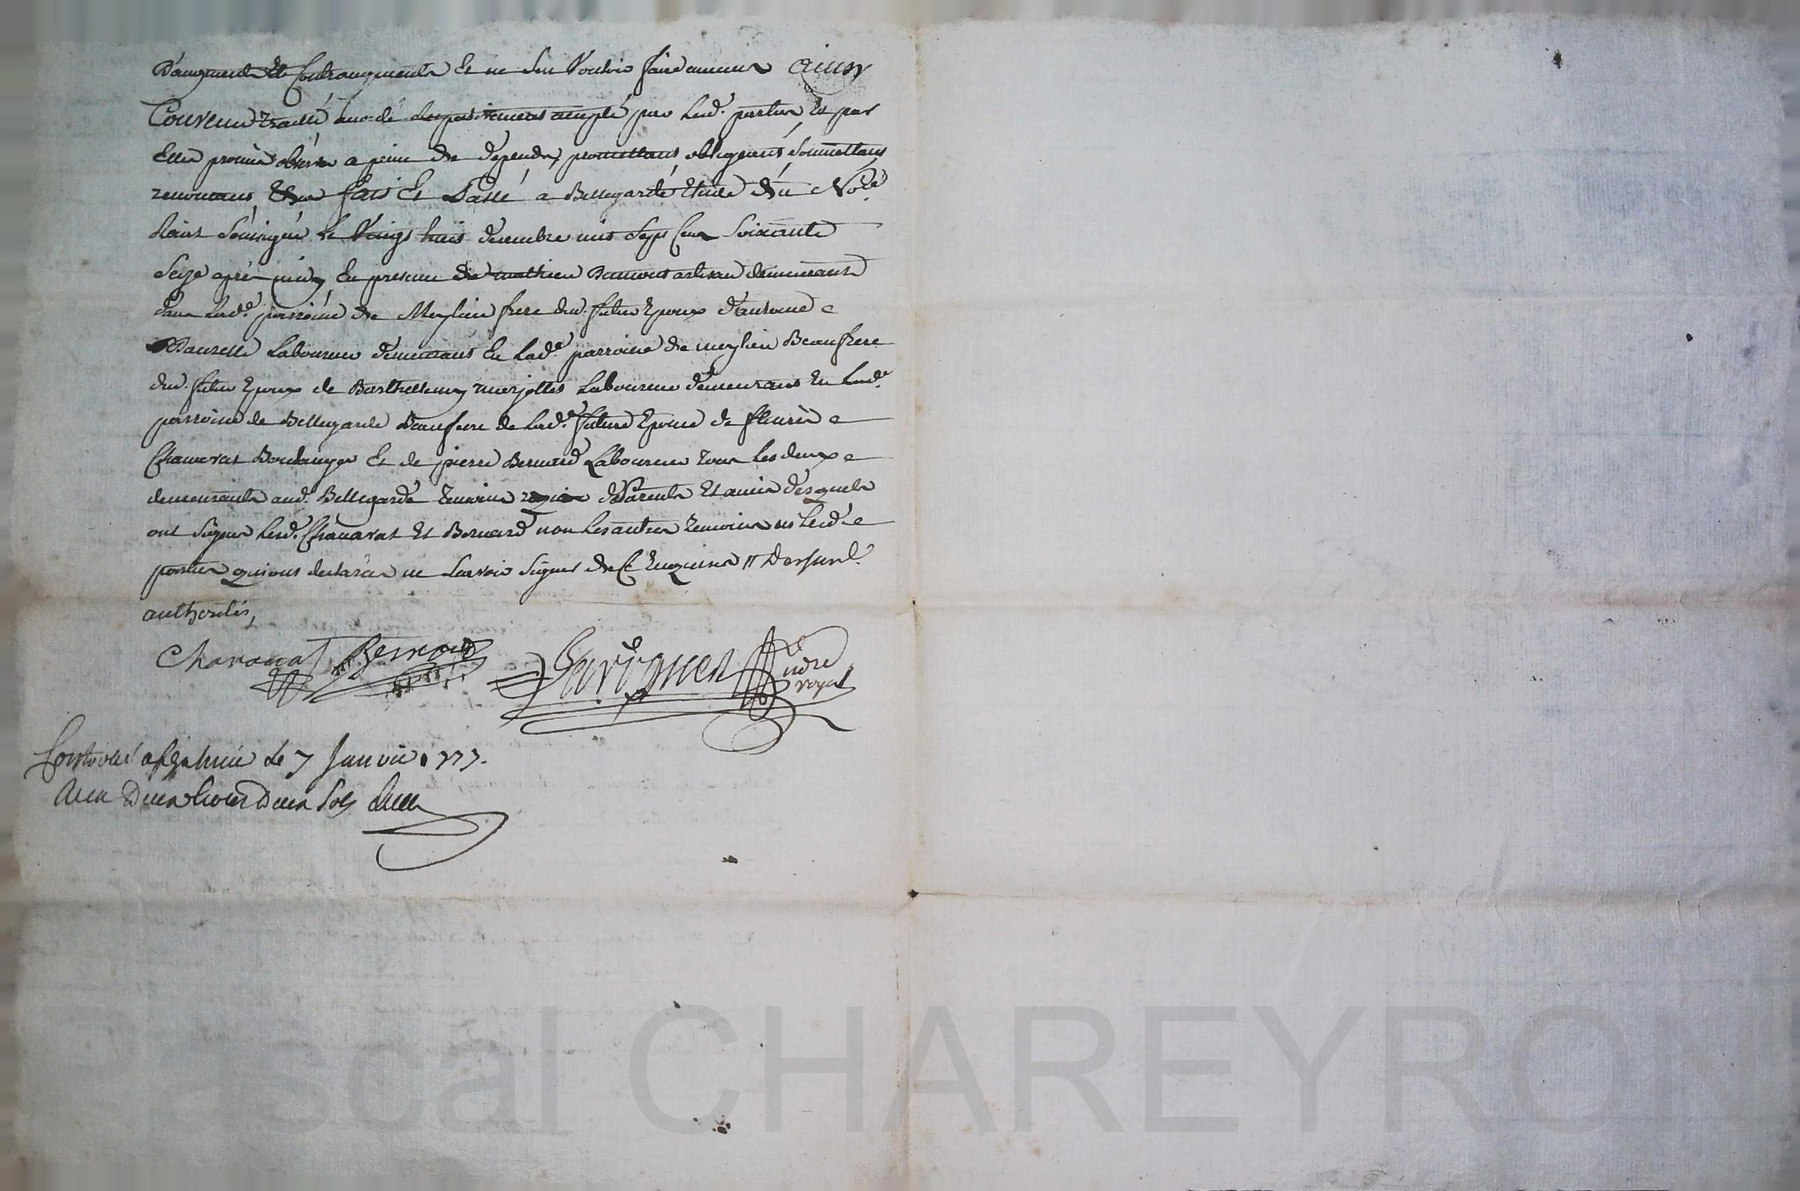 D'augmente et Contraugmente Et ne Sen Vouloir faire aucune ainsy
Convenu traitté acordé Respectivement accepté par Lesd. parties Et par
Elles promis observer a peine de depends, promettans obligeans Soumettans
renoncans, &ca fait Et Passé a Bellegarde Etude du No.re
Soussigné le Vingt huit decembre mil Sept Cent Soixante
Seize après midy En presence de mathieu demeurant
dans lad.e parroisse de Meylieu frere dud. futur Epoux d'antoine
Laboureur demeurant En Lad.e parroisse de meylieu Beaufrere
dud. futur Epoux de Barthelemy Laboureur demeurant En Lad.e
parroisse de Bellegarde Beaufrere de Lad.e future Epouse de fleurie
Chavanat Boulanger Et de pierre Bernard Laboureur tous Les deux
demeurants aud. Bellegarde temoins requis Parents Et amis desquels
ont Signes Lesd. Chavanat Et Bernard non Les autres temoins ni Lesd.
parties qui ont declarées ne Scavoir Signer de Ce Enquises //
authorités,
Chavanat Bernard
no.re royal
Controlé a le 7 Janvier 1777.
Sols
Pascal CHAREYRON